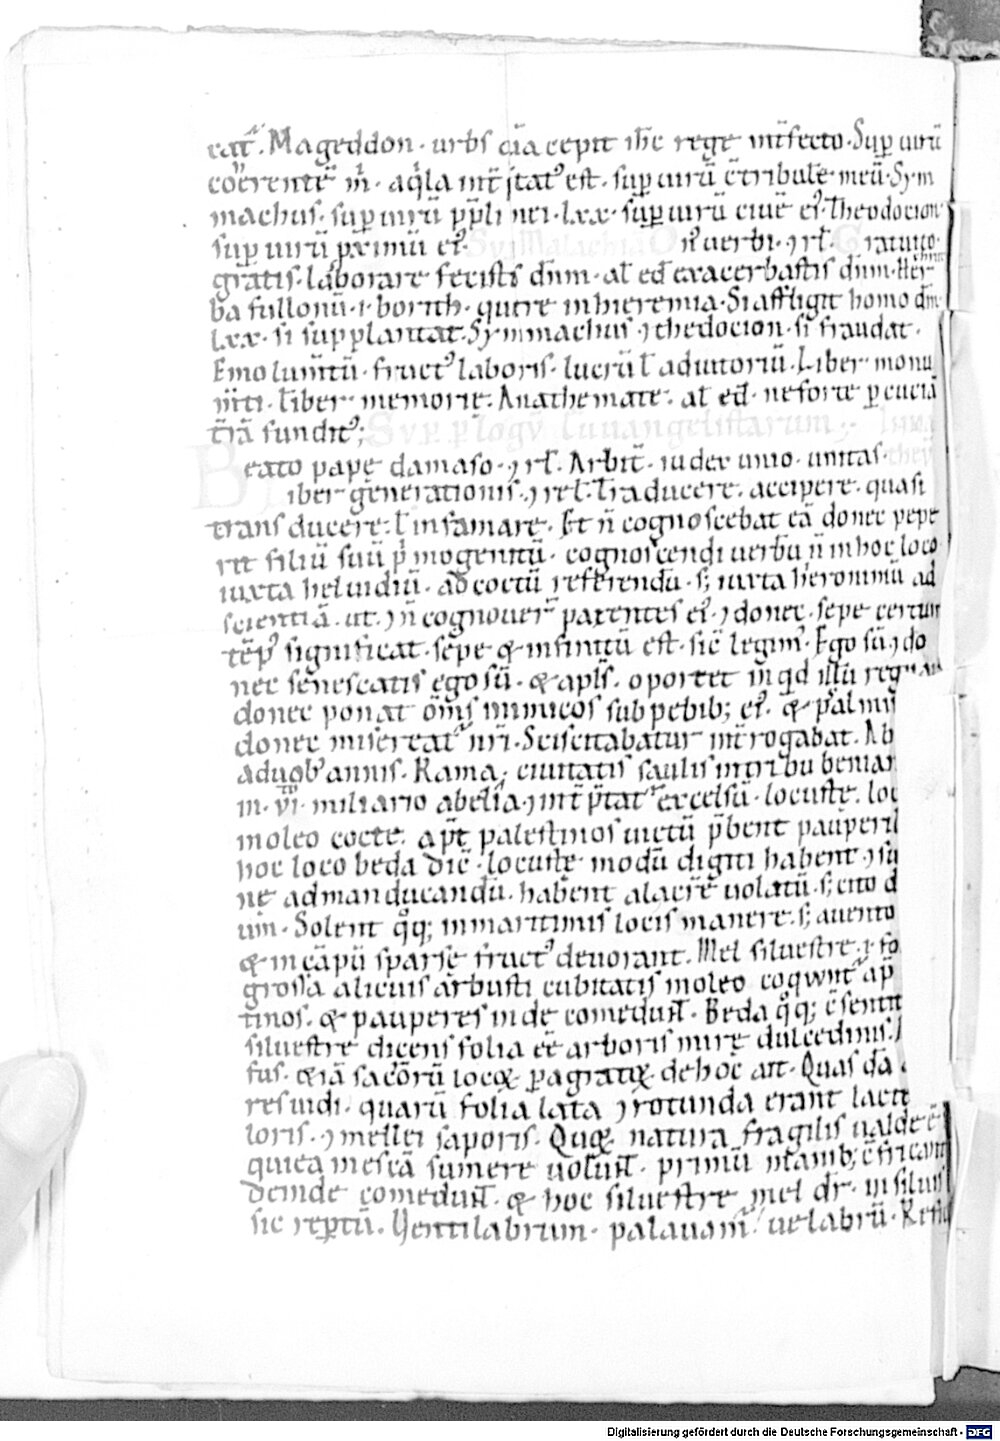 eat᷑. Mageddon. urbs q̄a cepit ih̄c rege int̄fecto. Sup uirū
coh̄erentē m̄. aq̇la int̄ptat᷒ est. sup uirū c̄tribulē meū. Sym
machus. sup uirū pp̄li mei. lxx. sup uirū ciuē ei᷒. Theodocion
sup uirū px̄imū ei᷒. Sup Malachia O n᷒ uerbi. ⁊ rl̄. Gratuito.
gratis. laborare fecistis dn̄m. al̄ ed̄ exacerbastis dn̄m. Her
ba fullonū. i. borith. quere in hieremia. Si affligit homo dm̄
lxx. si supplantat. Symmachus ⁊ thedocion. si fraudat.
Emolum̄tū. fruct᷒ laboris. lucrū l̄ adiutoriū. Liber monu
m̄ti. liber memorie. Anathemate. al̄ ed̄. ne forte p cuciā
t̄rā fundit᷒;
Sup p̄logū euuangelistarum
eato pape damaso. ⁊ rl̄. Arbit̄. iudex unio. unitas.
iber generationis. ⁊ rel̄. Traducere. accipere. quasi
trans ducere. l̄ infamare. Et n̄ cognoscebat eā donec pepe
rit filiū suū p̄mogenitū. cognoscendi uerbū n̄ in hoc loco
iuxta heluidiū. ad coetū referendū. s; iuxta heronimū ad
scientiā. ut. ⁊ n̄ cognouer̄ parentes ei᷒. ⁊ donec. sepe certum
tēp᷒ significat. sepe & infinitū est. sic̄ legim᷒. Ego sū. ⁊ do
nec senescatis ego sū. & apl̄s. oportet
donec ponat om̄s inimicos sub pedib; ei᷒. & psalmis
donec misereat᷑ nr̄i. Sciscitabatur int̄rogabat. Ab
a duob᷒ annis. Rama. ciuitatis saulis in tribu beniam
in. VII. miliario ab elia. ⁊ int̄p̄tat᷑ excelsū. locuste.
in oleo cocte. apt̄ palestinos uictū p̄bent pauperi
hoc loco beda dic̄. locuste modū digiti habent ⁊
ne ad manducandū. habent alacrē uolatū. s; cito
um. Solent q̊q; in maritimis locis manere. s; a uento
& in cāpū sparse fruct᷒ deuorant. Mel siluestre. i.
grossa alicuius arbusti cubitatis in oleo coqwnt᷑ ap̄
tinos. & pauperes inde comedunt̄. Beda q̊q; c̄sentit
siluestre dicens folia eē arboris mire dulcedinis.
fus. sacōrū locoꝝ pagratꝝ. de hoc ait. Quasdā
res uidi. quarū folia lata ⁊ rotunda erant lactei
loris. ⁊ mellei saporis. Queꝝ natura fragilis ualde ē
qui ea in escā sumere uolunt̄. primū manib; c̄fricant
deinde comedunt̄. & hoc siluestre mel dr̄. in siluis
sic reptū. Uentilabrum. palauam̄. uelabrū.
Digitalisierung gefördert durch die Deutsche Forschungsgemeinschaft - DFG